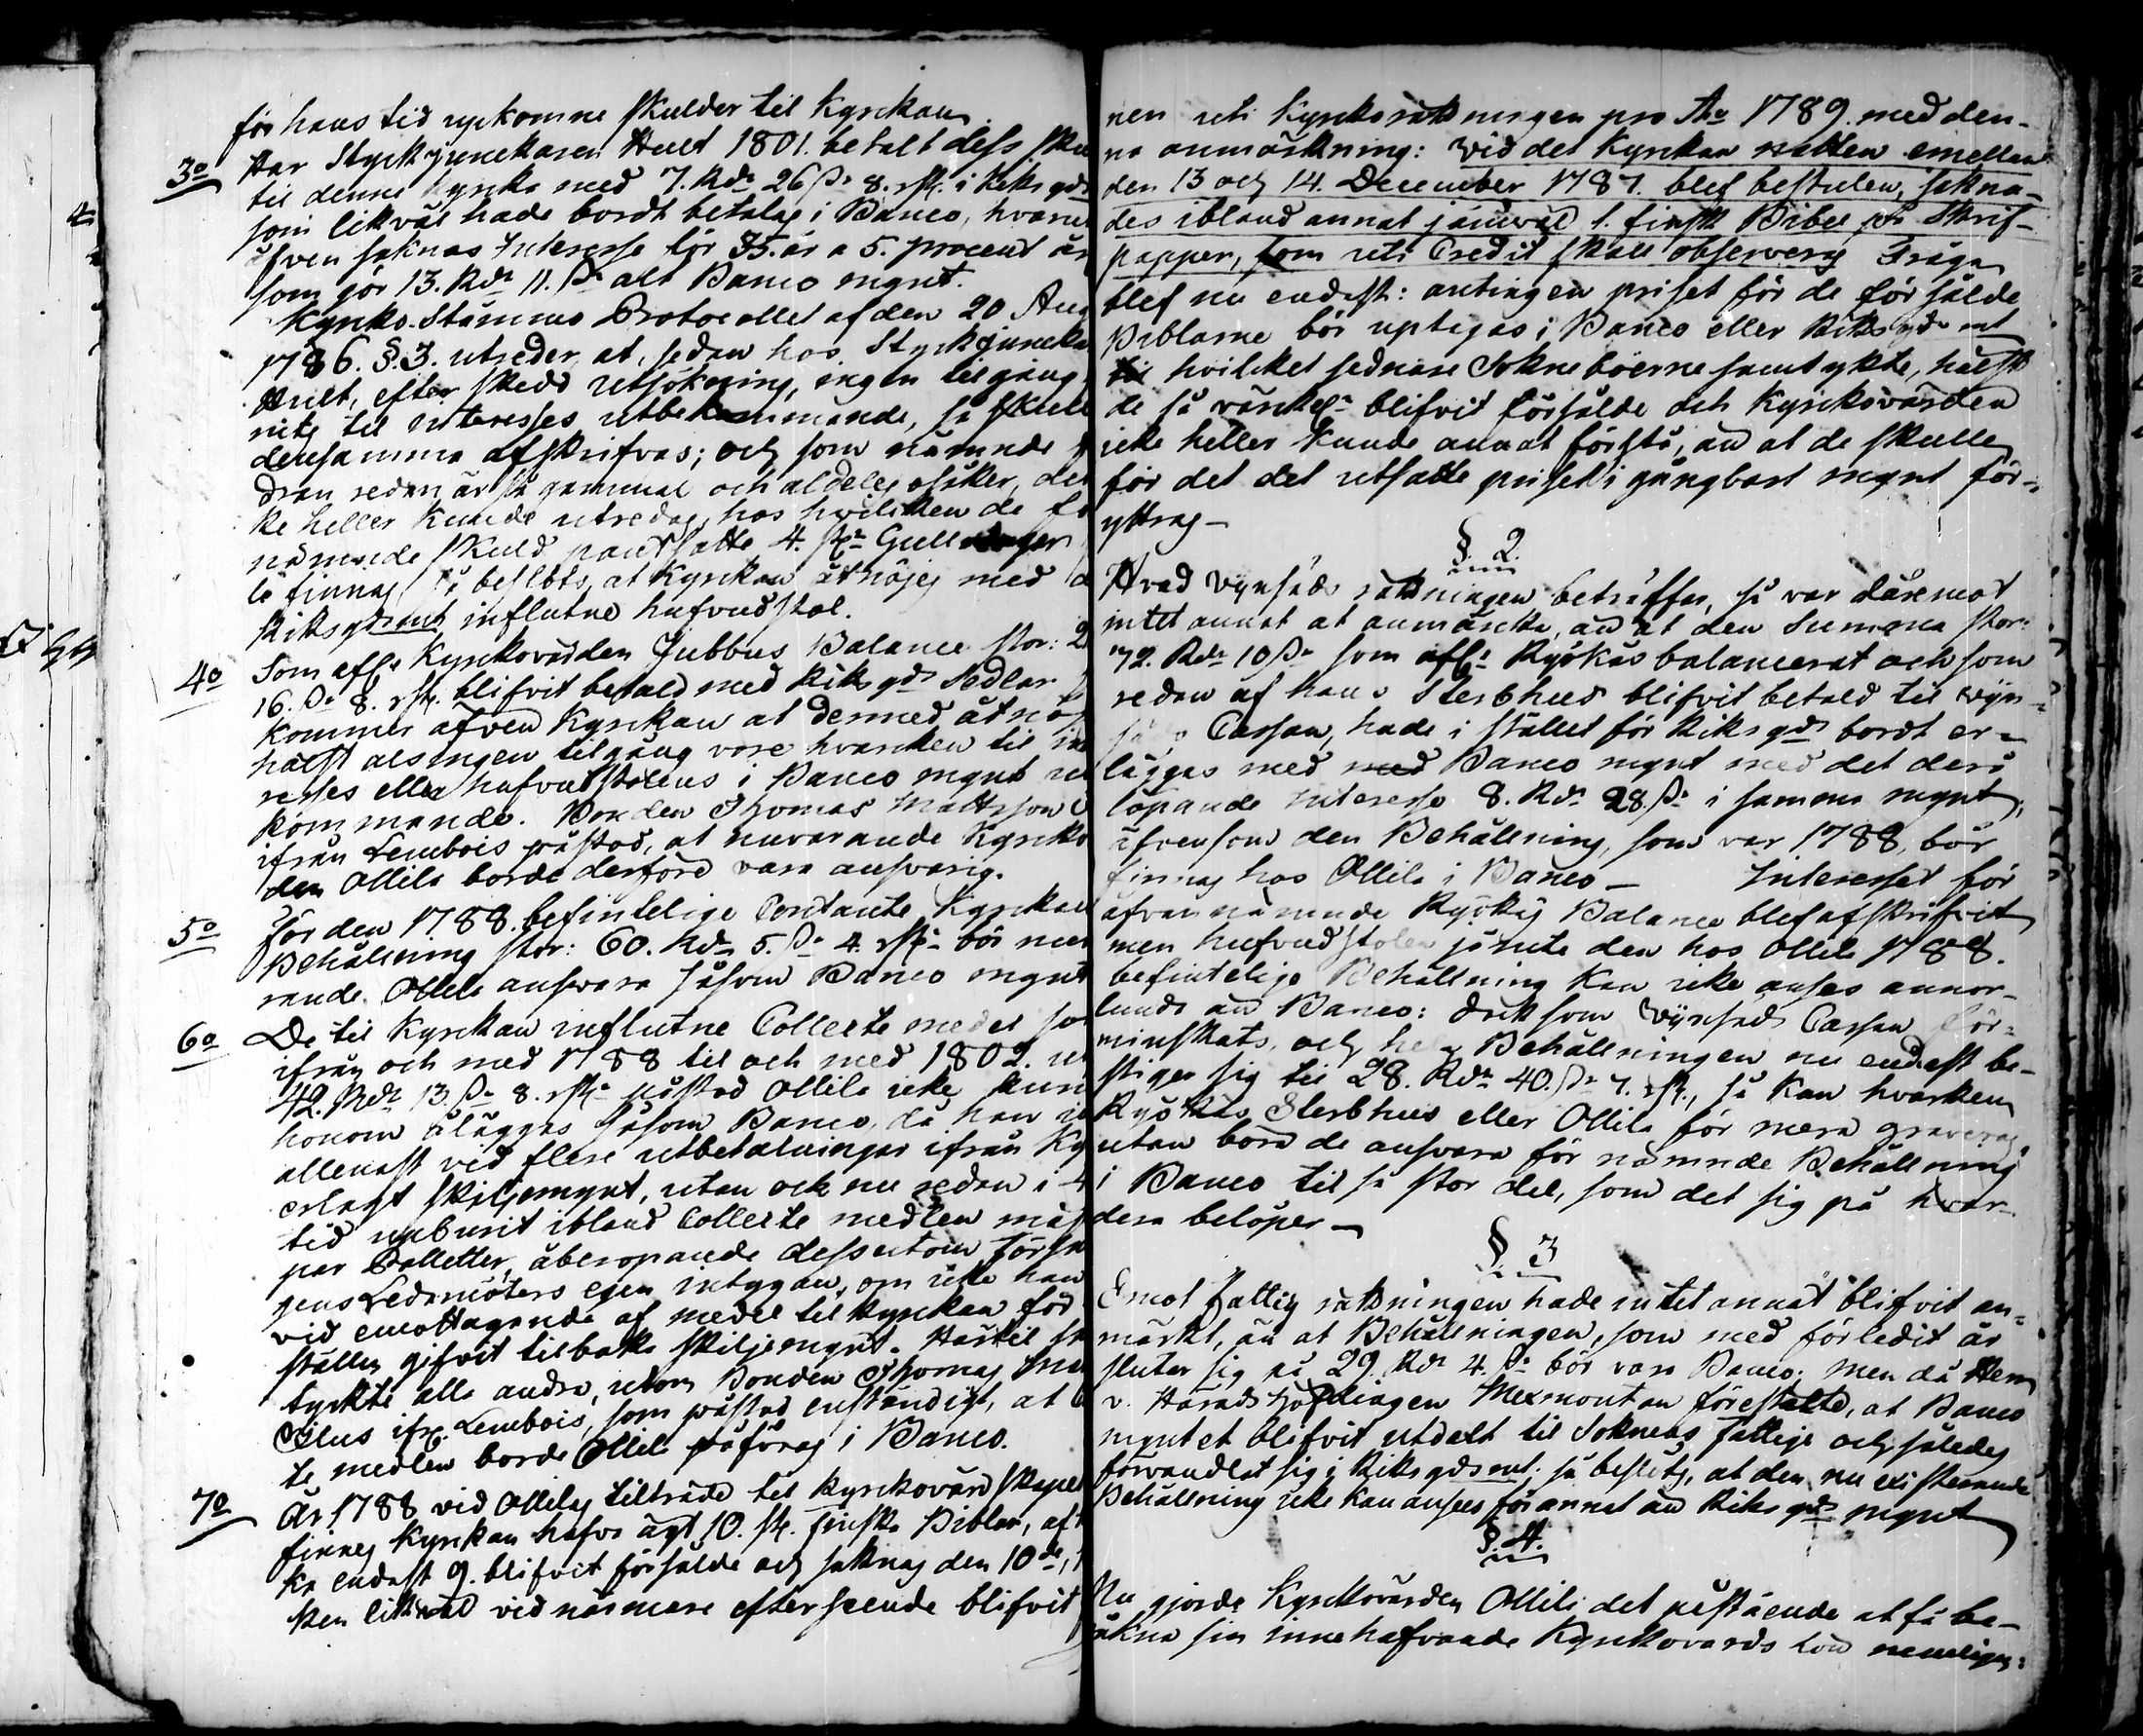 för hans tid upkomne skulder til Kyrckan.
3o Har Styckjunckaren Hult 1801. betalt dess sku
til denne Kyrcka med 7. Rdr 26 sz 8. rst. i Riksgds
som likväl hade bordt betalas i Banco, hvaru
äfven saknas Interesse för 35. år a 5. procent år
som gör 13. Rdr 11. sz alt Banco mynt.
Kyrko-Stämmo Protocollet af den 20 Aug
1786. §. 3. utreder, at, sedan hos Styckjuncka
Hult, efter skedd utsökning, ingen tilgång
nits til interesses utbekommande, så skull
densamma afskrifvas; och som nämnde f
dran redan är så gammal och aldeles osäker, det
ke heller kunde utredas, hos hvilcken de fö
nämnde skuld pantsatte 4. st. Gullringar
lö finnas, så beslöts, at Kyrckan åtnöjes med d
Riksgdsmt influtne hufvudstol.
4o Som aflr Kyrckovärden Jubbus Balance stor: 2
16. sz 8. rst. blifvit betald med Riksgds Sedlar
kommer äfven Kyrckan at dermed åtnöj
hälst alsingen tilgång vore hvarcken til int
resses eller hufvudstolens i Banco mynt ut
kommande. Bonden Thomas Mattsson
ifrån Lembois påstod, at nuvarande Kyrcko
den Ollila borde derföre vara answarig.
5o För den 1788. befintelige Contante Kyrckans
Behållning stor: 60. Rdr 5. sz 4. rst. bör nuv
rande Ollila answara såsom Banco mynt
6o De til Kyrckan influtne Collecte medel som
ifrån och med 1788 til och med 1802. ut
42. Rdr 13. sz 8. rst. påstod Ollila icke kun
honom åläggas såsom Banco, då han ic
allenast vid flere utbetalningar ifrån Ky
erlagt skiljemynt, utan ock nu redan i 4
tid upburit ibland Collecte medlen mäs
par Polletter, åberopande dessutom Försa
gens Ledamöters egen intygan, om icke han
vid emottagande af medel til Kyrckan för
ställen gifvit tilbaka skiljemynt. Härtil sa
tyckte alla andra, utom Bonden Thomas Mat
Silus ifr. Lembois, som påstod enständigt, at C
te medlen borde Ollila påföras i Banco.
7o År 1788 vid Ollilas tilträde til Kyrckovärdskapet
finnes Kyrckan hafva ägt 10. st. finska Biblar, af h
ka endast 9. blifvit försålde och saknas den 10de,
ken likväl vid närmare efterseende blifvit
nen uti Kyrckoräkningen pro Ao 1789. med den-
na anmärkning: Wid det Kyrckan natten emellan
den 13 och 14. December 1787. blef bestulen, sakna-
des ibland annat jämväl 1. finsk Bibel på Skrif-
papper, som uti Credit skall observeras Fråga
blef nu endast: antingen priset för de försålde
Biblarne bör uptagas i Banco eller Riksgds mt
hvilcket sednare Sokneboerne samtykte, hälst
de så värckel. blifvit försålde och Kyrckovärden
icke heller kunde annat förstå, än at de skulle
för det det utsatte priset i gångbart mynt för-
yttras –
§. 2.
Hvad Wynsäds räkningen beträffar, så var däremot
intet annat at anmärcka, än at den Summa stor:
72. Rdr 10 sz som aflr Ryökäs balancerat och som
redan af hans Sterbhus blifvit betald til Wyn-
säds Cassan, hade i stället för Riksgds bordt er-
läggas med Banco mynt med det derå
löpande interesse 8. Rdr 28. sz i samma mynt,
äfvensom den Behållning, som var 1788, bör
finnas hos Ollila i Banco – Interesset för
åfvannämnde Ryökäs Balance blef afskrifvit
men hufvudstolen jämte den hos Ollila 1788.
befintelige Behållning kan icke anses annor-
lunda än Banco: Dock som Wynsäds Cassan för-
minskats, och hela Behållningen nu endast be-
stiger sig til 28. Rdr 40. sz 7. rst., så kan hvarcken
Ryökäs Sterbhus eller Ollila för mera graveras,
utan böra de answara för nämnde Behållning
i Banco til så stor del, som det sig på hvar-
dera belöper –
§ 3
Emot Fattig räkningen hade intet annat blifvit an-
märkt, än at Behållningen, som med förledit år
slutar sig på 29. Rdr 4. sz bör vara Banco; men då Herr
v. Häradshöfdingen Mexmontan föreställte, at Banco
myntet blifvit utdelt til Soknens fattige och således
förvandlat sig i Riksgdsmt; så beslöts, at den nu existerande
Behållning icke kan anses för annat än Riksgds mynt
§. 4.
Nu gjorde Kyrckovärden Ollila det påstående at få be-
räkna sin innehafvande Kyrckovärds lön nemligen: